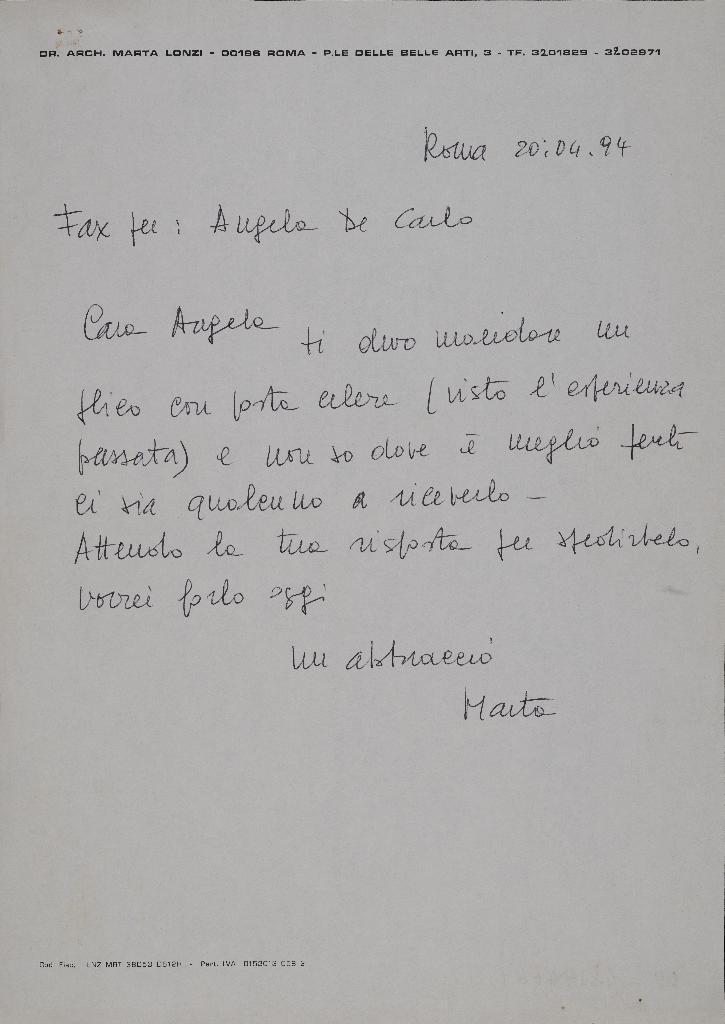 DR. ARCH. MARTA LONZI - 00196 ROMA - P.LE DELLE BELLE ARTI, 3 - TF. 3201829 - 3202971
Roma 20.04.94
Fax per: Angela De Carlo
Cara Angela ti devo mandare un
plico con posta celere (visto l'esperienza
passata) e non so dove è meglio perché
ci sia qualcuno a riceverlo -
Attendo la tua risposta per spedirtelo,
vorrei farlo oggi
un abbraccio
Marta
Cod. Fisc. LNZ MRT - Part. IVA